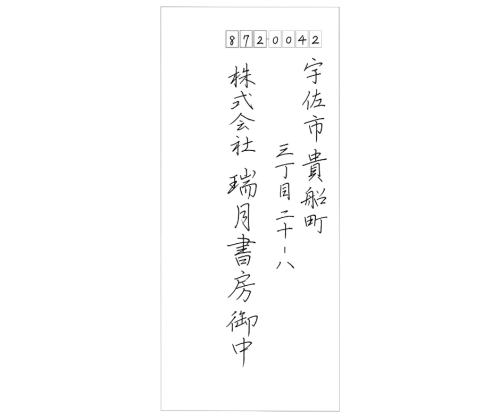 872-0042
宇佐市貴船町
三丁目二十-八
株式会社 瑞月書房御中